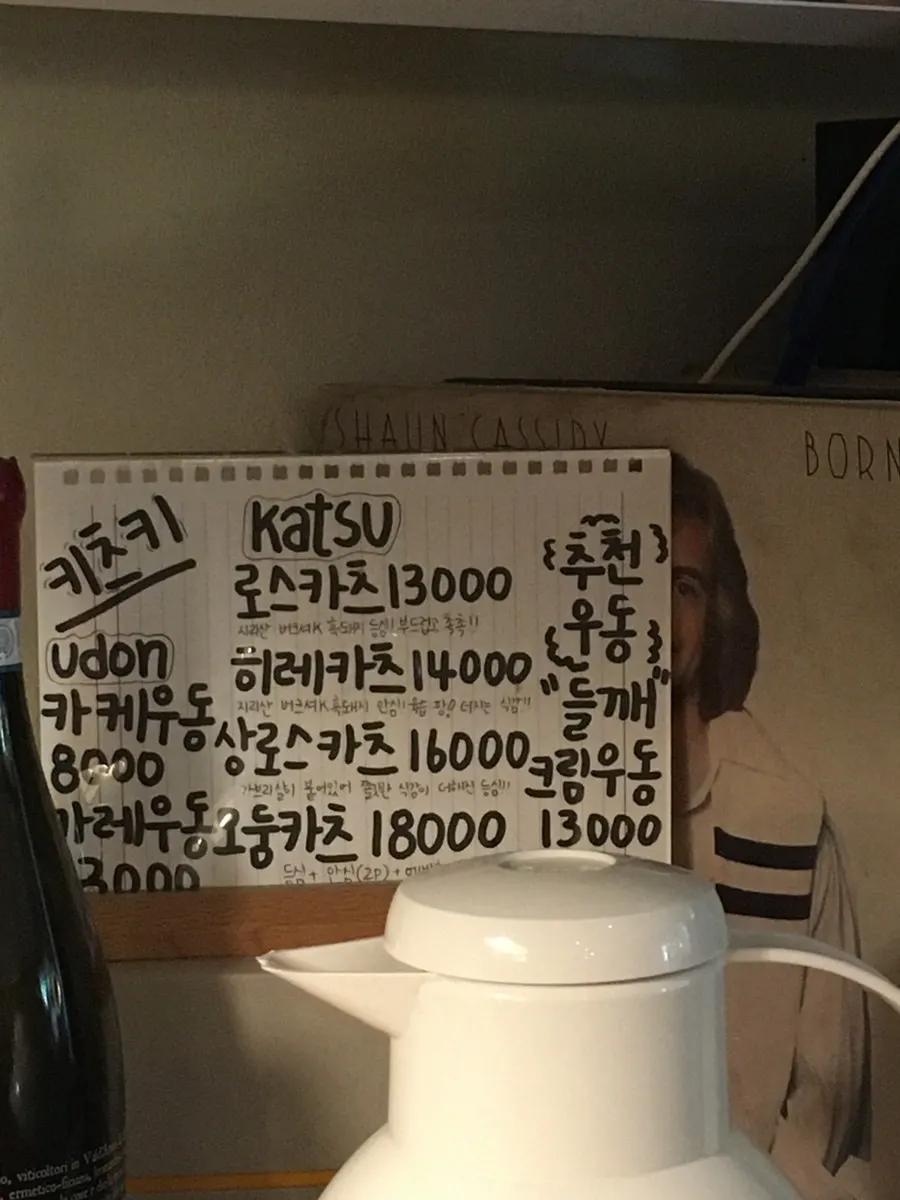 SHAUN CASSIDY
BORN
키츠키
udon
카케우동
8000
카레우동
3000
Katsu
로스카츠 13000
지리산 버크셔K 흑돼지 등심! 부드럽고 촉촉!!
히레카츠 14000
지리산 버크셔K 흑돼지 안심! 육즙 팡! 터지는 식감!!
상로스카츠 16000
가브리살이 붙어있어 쫄깃한 식감이 더해진 등심!!
모둠카츠 18000
등심 + 안심(2P) +
추천
우동
"들깨"
크림우동
13000
viticoltori in